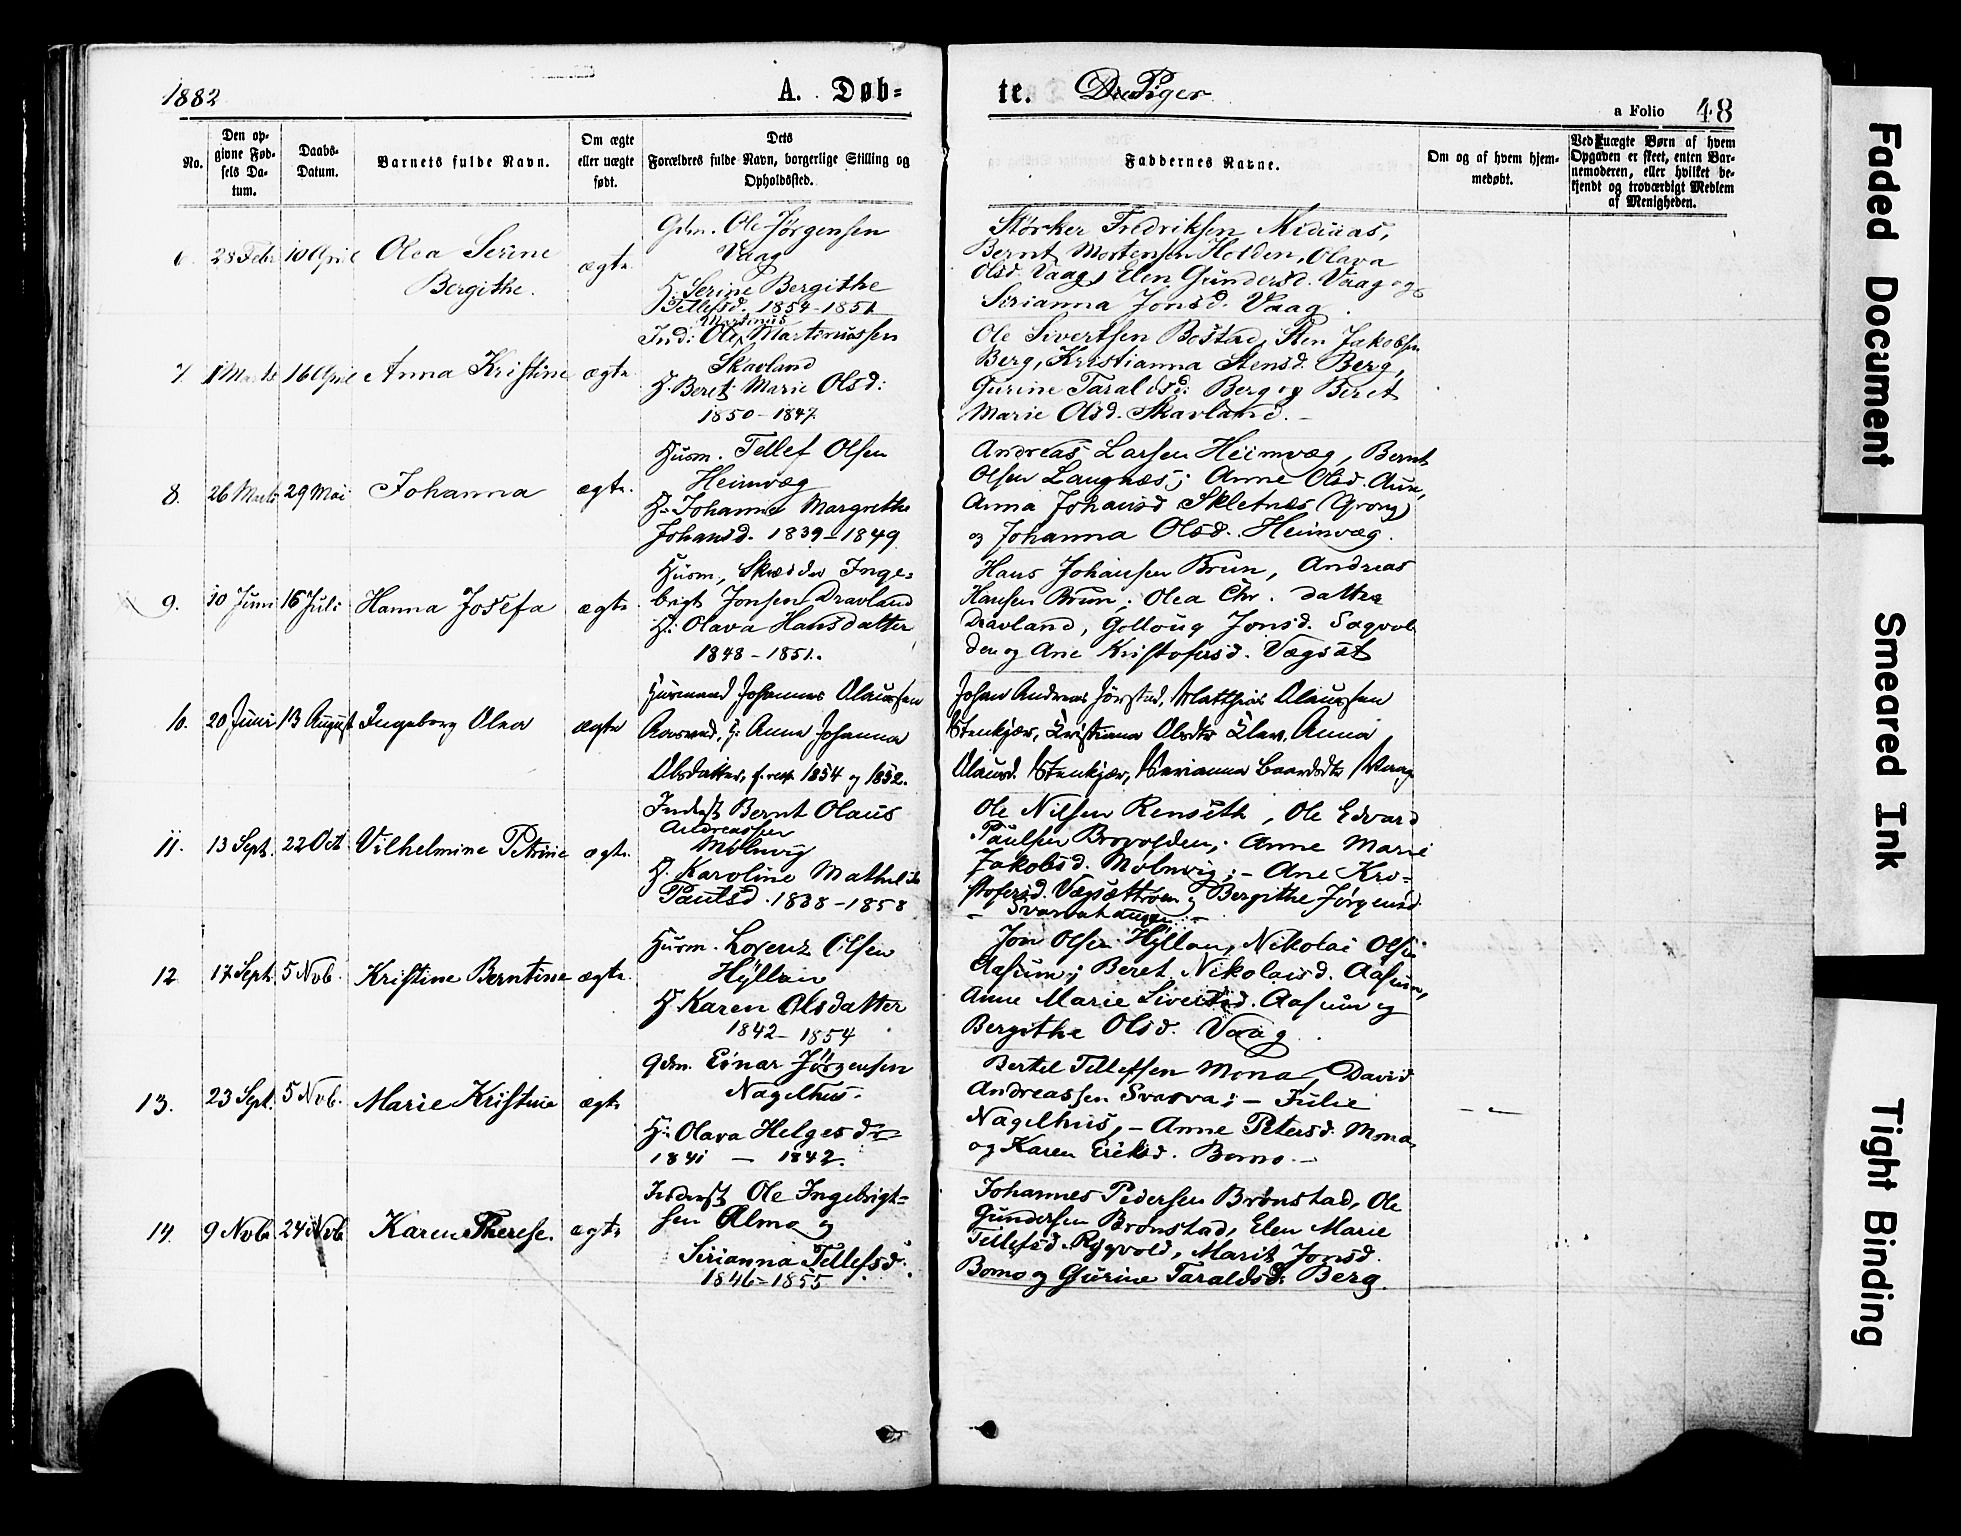 1882
A. Døb=
te. Piger
a Folio 48
No.
Den op-
givne Fød-
sels Da-
tum.
Daabs-
Datum.
Barnets fulde Navn.
Om ægte
eller uægte
født.
Dets
Forældres fulde Navn, borgerlige Stilling og
Opholdssted.
Faddernes Navne.
Om og af hvem hjem-
medøbt.
Ved uægte Børn af hvem
Opgaven er skeet, enten Bar-
nemoderen, eller hvilket be-
kjendt og troværdigt Medlem
af Menigheden.
6. 28 Febr 10 April Olea Serine
Bergithe.
ægte
Gdm. Ole Jørgensen
Vaag
H. Serine Bergithe
Tellefsd. 1854-1851
Størker Fredriksen Midüas,
Bernt Mortensen Holden, Olava
Olsd. Vaag, Elen Gundersd. Vaag og
Sirianna Jonsd. Vaag.
7. 1 Marts 16 April Anna Kristine ægte
Martinus
Ind: Ole Martinussen
Skavland
H. Beret Marie Olsd:
1850-1847
Ole Sivertsen Bostad, Sten Jakobsen
Berg, Kristianna Stensd. Berg,
Gurine Taraldsd: Berg og Beret
Marie Olsd. Skavland.-
8. 26 Marts 29 Mai Johanna ægte.
Husm. Tellef Olsen
Heimvæg
H: Johanna Margrethe
Johansd. 1839-1849
Andreas Larsen Heimvæg, Bernt
Olsen Langnæs; Anne Olsd. Aun,
Anna Johansd Skletnæs (Grong)
og Johanna Olsd. Heimvæg.
9. 10 Juni 16 Juli Hanna Josefa ægte
Husm, Skrædder Inge-
brigt Jonsen Dravland
H: Olava Hansdatter
1848-1851.
Hans Johansen Brun, Andreas
Hansen Brun; Olea Chr. datter
Dravland, Golloug Jonsd. Sagvol
den og Ane Kristofersd. Vægsæt
10. 20 Juni 13 August Ingeborg Olea ægte
Husmand Johannes Olaussen
H: Anna Johanna
Olsdatter, f. resp. 1854 og 1852.
Johan Andreas Jørstad, Matthias Olaussen
Stenkjær, Kristiana Olsdtr Klæv, Anna
Olausd. Stenkjær, Marianna Baardsdtr
11. 13 Sept. 22 Oct Vilhelmine Petrine ægte.
Inderst Bernt Olaus
Andreassen
Mølnvig
H. Karoline Mathilde
Paulsd. 1838-1858
Ole Nilsen Renseth, Ole Edvard
Paulsen Brovolden; Anne Marie
Jakobsd. Mølnvig;- Ane Kri-
stofersd. Vægsættroen og Bergithe Jørgensd
-
12 17 Sept. 5 Nvb. Kristine Berntine ægte.
Husm. Lorenz Olsen
Hyllan
H Karen Olsdatter
1842-1854
Jon Olsen Hyllan, Nikolai Olsen
Aasum; Beret Nikolaisd. Aasum,
Anne Marie Sivertsd. Aasum og
Bergithe Olsd. Vaag.
13. 23 Sept. 5 Nvb. Marie Kristine ægte
Gdm. Einar Jørgensen
Nagelhus.
H: Olava Helgesdtr
1841 - 1842.
Bertel Tellefsen Mona, David
Andreassen Svarva;- Julie
Nagelhus,- Anne Petersd. Mona
og Karen Eriksd. Bomo.-
14. 9 Nvbr 24 Nvb. Karen Therese. ægte
Inderst Ole Ingebrigt-
sen Almo og
Sirianna Tellefsd.
1846-1855
Johannes Pedersen Brønstad, Ole
Gundersen Brønstad, Elen Marie
Tellefsd. Rygvold, Marit Jonsd.
Bomo og Gurine Taraldsd: Berg.
Faded Document
Smeared Ink
Tight Binding